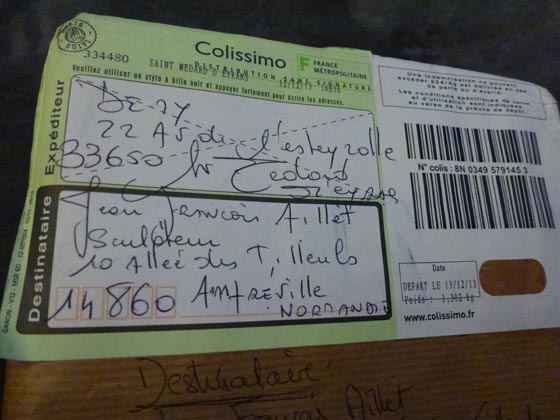 334480
Colissimo
F FRANCE
MÉTROPOLITAINE
SAINT MEDARD D'EYRANS
DISTRIBUTION SANS SIGNATURE
Veuillez utiliser un stylo à bille noir et appuyer fortement pour écrire les adresses.
Expéditeur
22 de l'esteyrolle
33650 St Medard
d'Eyrans
Destinataire
Jean François Aillet
Sculpteur
10 Allée des Tilleuls
14860 AMFREVILLE
NORMANDIE
Une indemnisation ne pouvant
excéder 23€/kg est délivrée en cas
de perte ou d'avarie.
Les conditions spécifiques de vente
et d'utilisation sont indiquées
au verso de la preuve de dépôt.
N° colis : 8N 0349 579145 3
Date
DEPART LE 13/12/13
Poids : 1,302 kg
www.colissimo.fr
Destinataire:
François Aillet